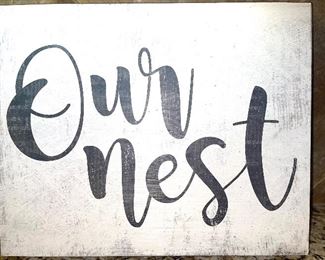 Our
nest